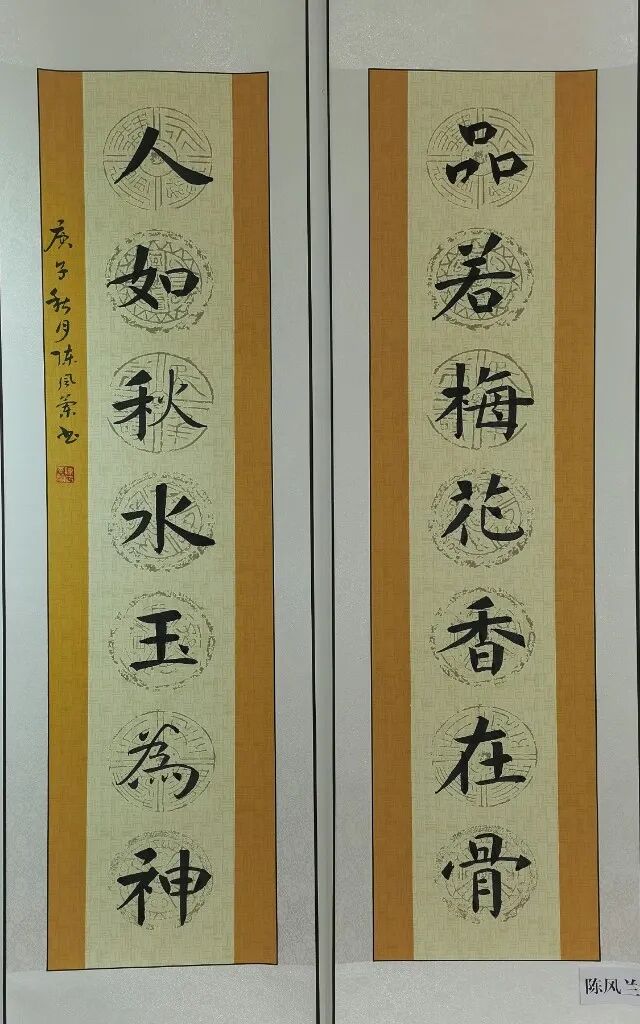 品若梅花香在骨
人如秋水玉為神
庚子秋月陈风兰书
陈风兰